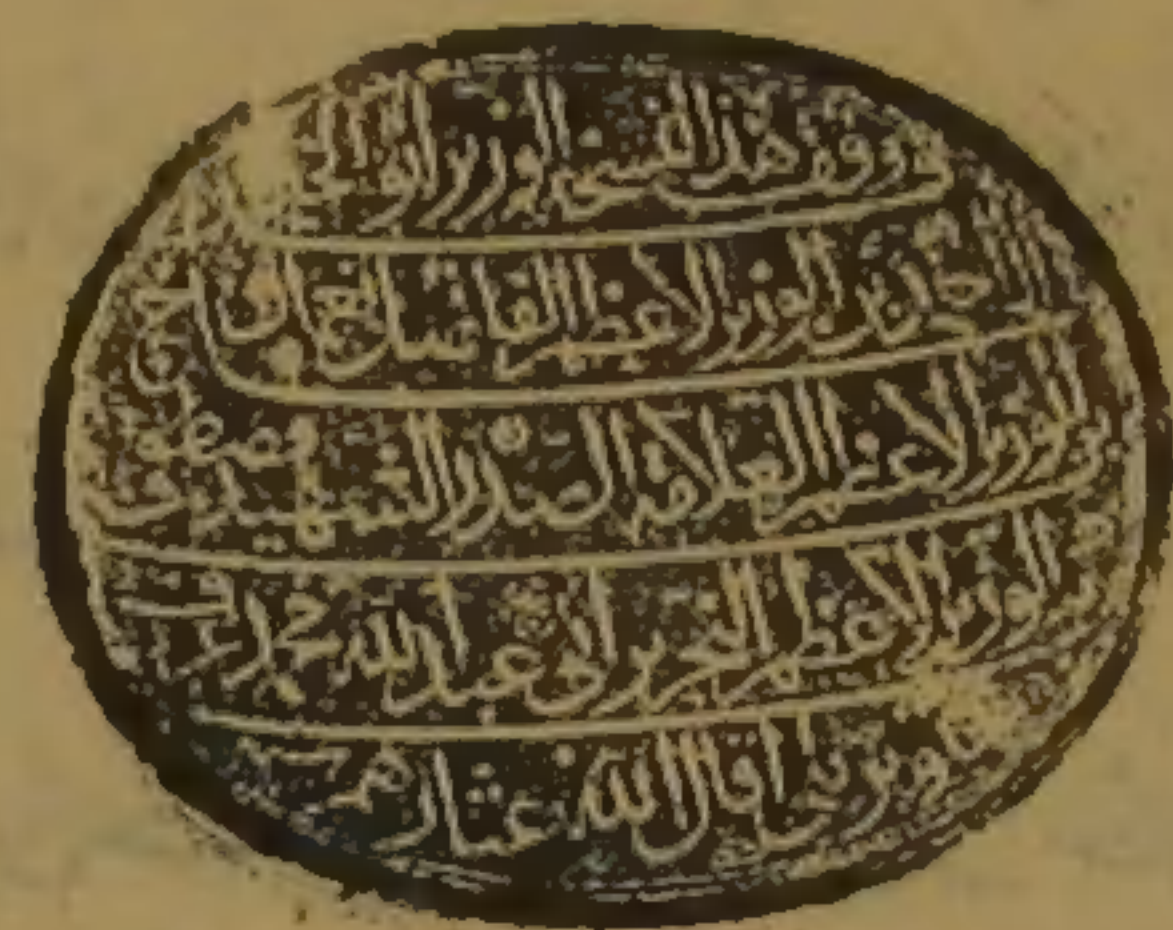 قد وقف هذا النسخة الوزير ابو
احمد نعمان بن الوزير الاعظم الفاضل اعني به الحاج
بن الوزير الاعظم العلامة الصدر الشهيد مصطفى
الوزير الاعظم النحرير ابي عبد الله محمد عرف
بكوپريلي اقال الله عثارهم